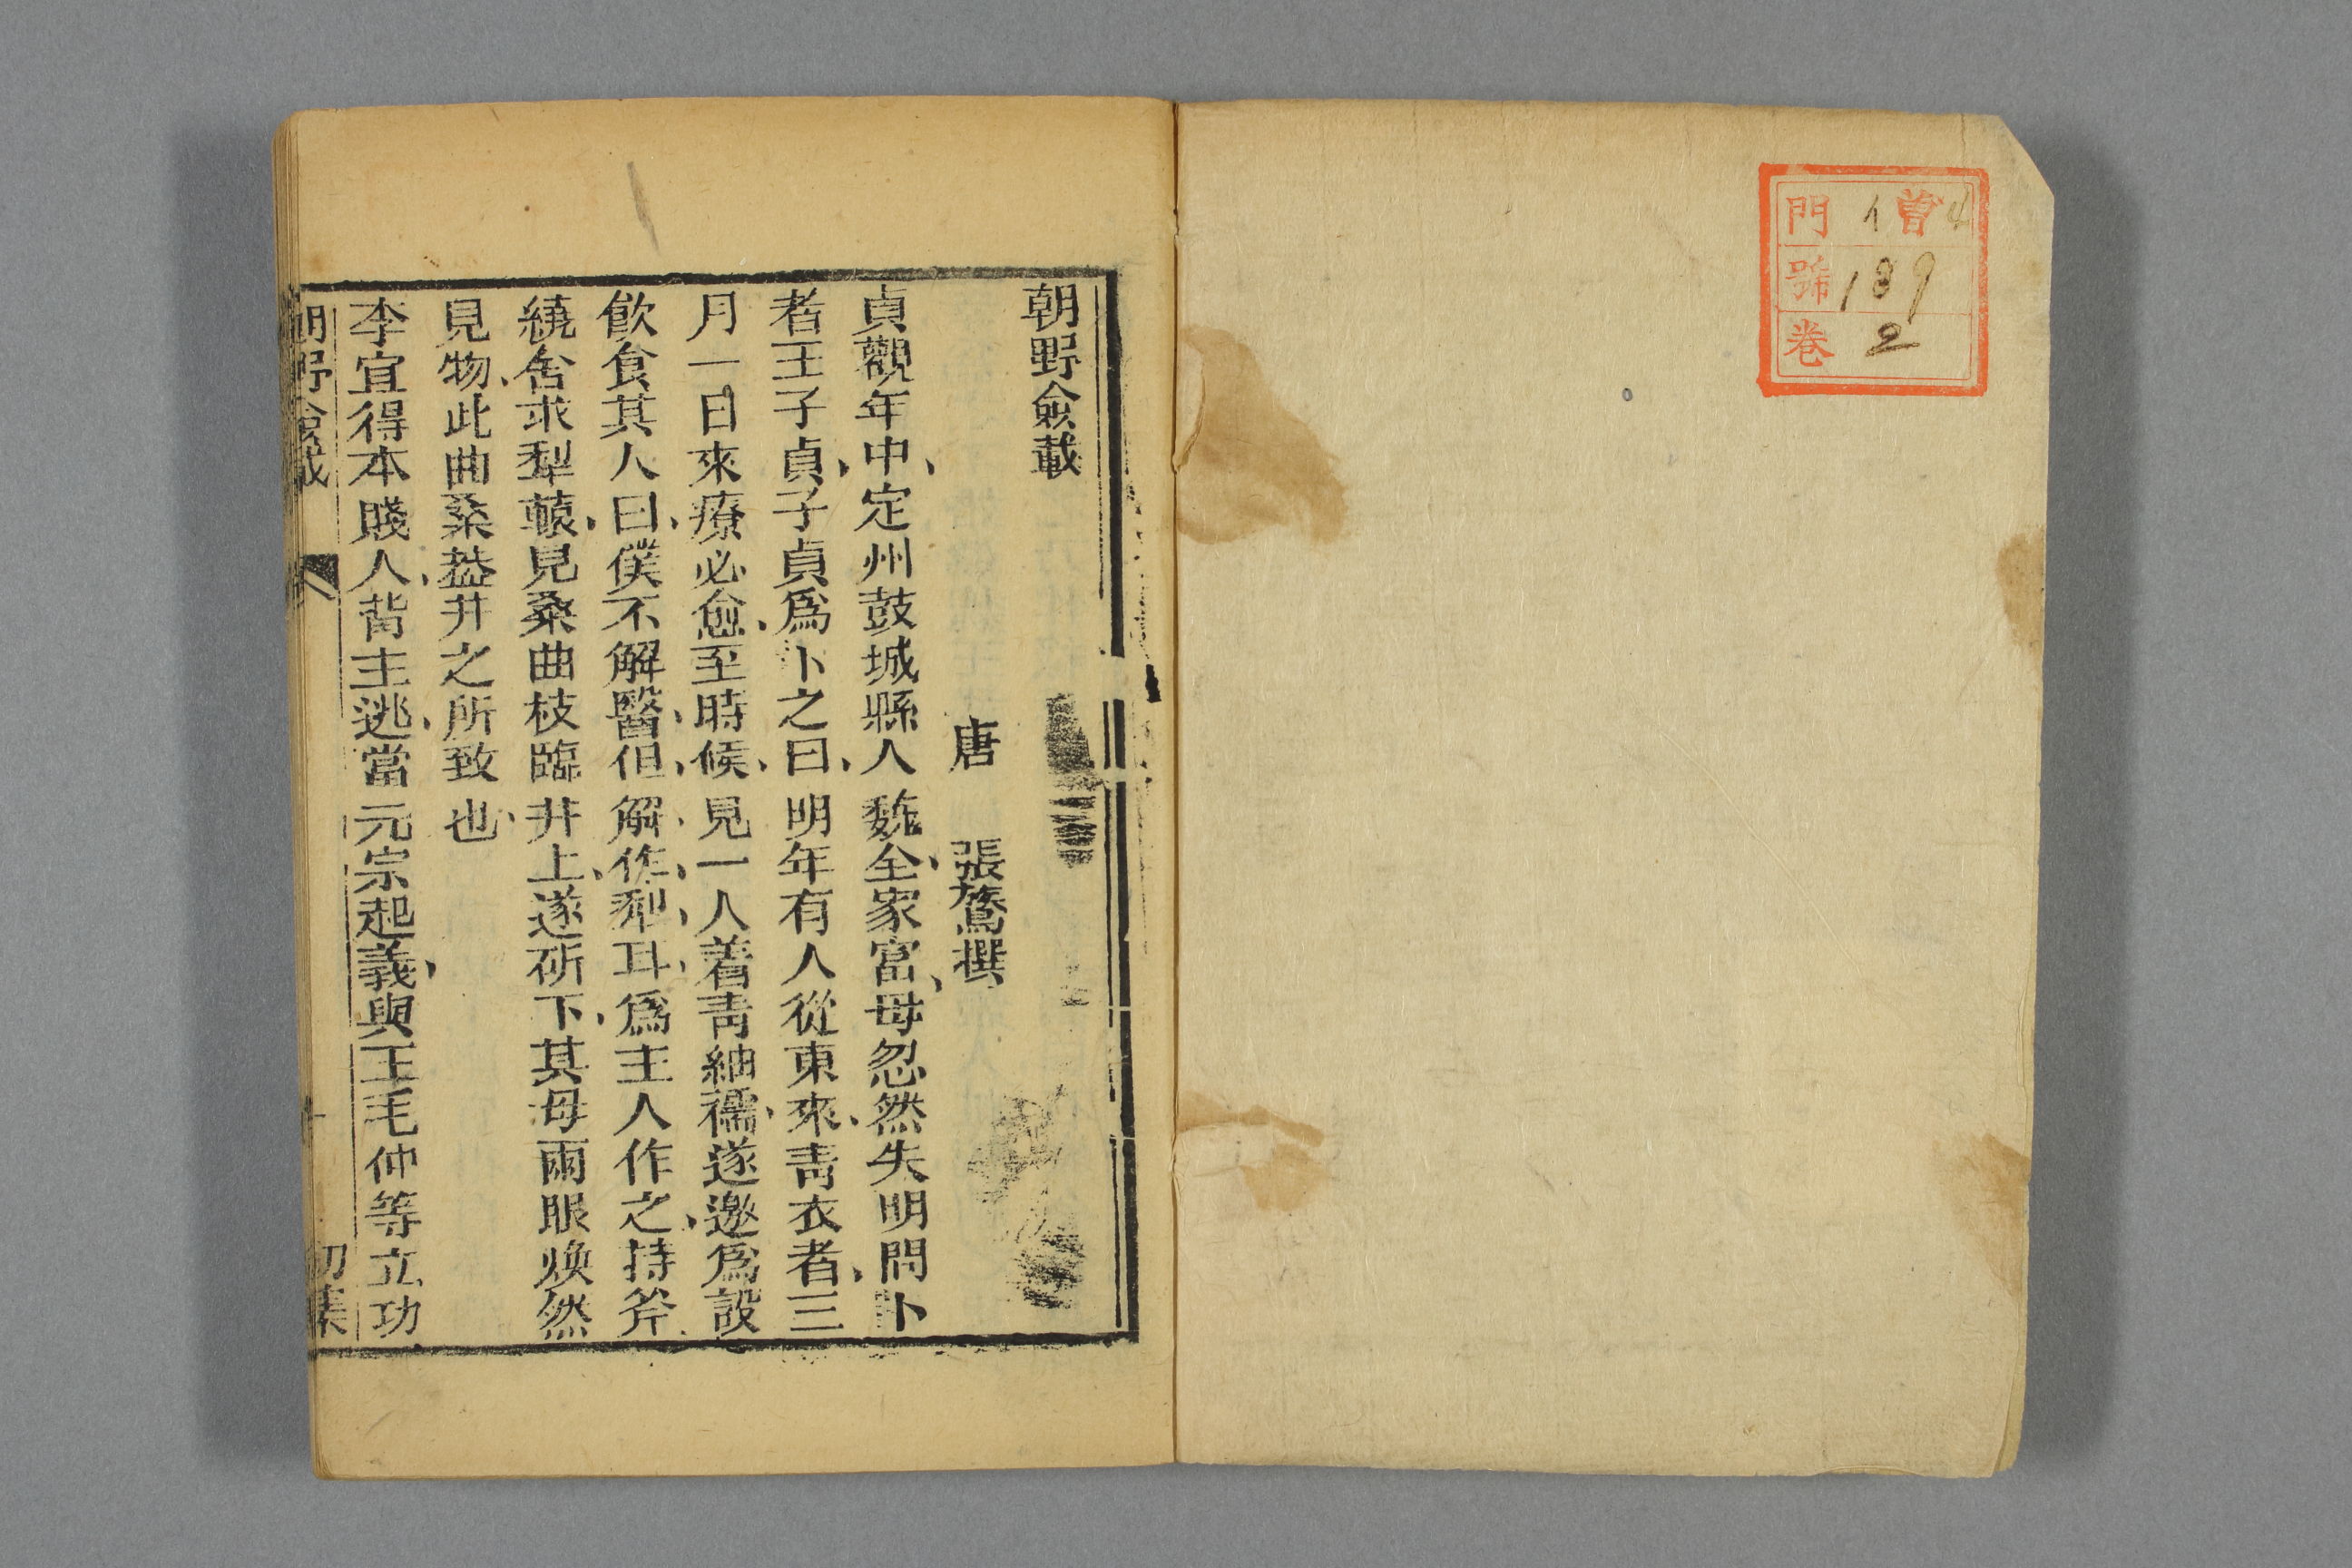 門 1 曽 4
號 189
卷 2
朝野僉載
唐 張鷟撰
貞觀年中、定州鼓城縣人魏全家富、母忽然失明問卜
者王子貞、子貞爲卜之曰、明年有人從東來、靑衣者、三
月一日來療必愈、至時候、見一人着靑紬襦、遂邀爲設
飮食其人曰、僕不解醫、但、解作犁耳、爲主人作之、持斧
繞舍求犁轅、見桑曲枝臨井上、遂斫下、其母兩眼煥然
見物、此曲桑葢井之所致也、
李宜得本賤人、背主逃、當元宗起義、與王毛仲等立功
朝野僉載 一 初集